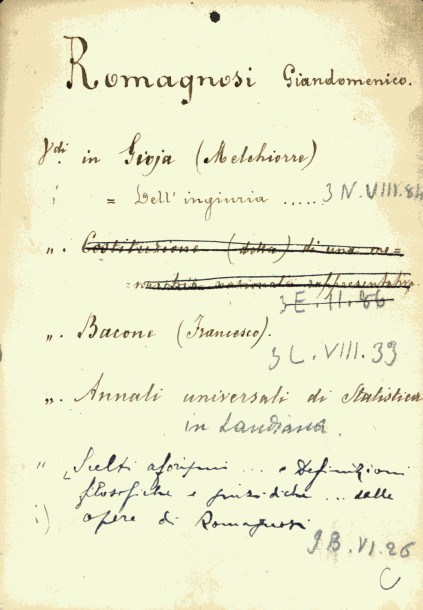 Romagnosi Giandomenico.
Vdi in Gioja (Melchiorre)
= Dell'ingiuria ..... 3 N. VIII. 84
„. Costituzione (della) di una mo=
=narchia nazionale rappresentativa.
3 E. 11. 86
„. Bacone (Francesco).
3 L. VIII. 39
„. Annali universali di Statistica
in Landiana.
" Scelti aforismi ... e Definizioni
filosofiche e giuridiche ... dalle
opere di Romagnosi
9 B. VI. 26
C